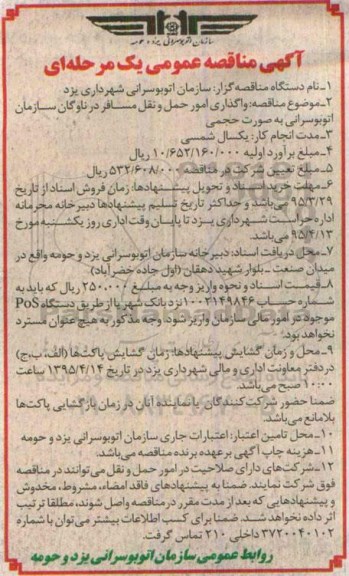 سازمان اتوبوسرانی یزد و حومه
آگهی مناقصه عمومی یک مرحله‌ای
۱-نام دستگاه مناقصه گزار: سازمان اتوبوسرانی شهرداری یزد
۲-موضوع مناقصه: واگذاری امور حمل و نقل مسافر در ناوگان سازمان
اتوبوسرانی به صورت حجمی
۳-مدت انجام کار: یکسال شمسی
۴-مبلغ برآورد اولیه ۱۰/۶۵۲/۱۶۰/۰۰۰ ریال
۵-مبلغ تعیین شرکت در مناقصه ۵۳۲/۶۰۸/۰۰۰ ریال
۶-مهلت خرید اسناد و تحویل پیشنهادها: زمان فروش اسناد از تاریخ
۹۵/۳/۲۹ می‌باشد و حداکثر تاریخ تسلیم پیشنهادها دبیرخانه محرمانه
اداره حراست شهرداری یزد تا پایان وقت اداری روز یکشنبه مورخ
۹۵/۴/۱۳ می‌باشد.
۷-محل دریافت اسناد: دبیرخانه سازمان اتوبوسرانی یزد و حومه واقع در
میدان صنعت - بلوار شهید دهقان (اول جاده خضرآباد)
۸-قیمت اسناد و نحوه واریز وجه به مبلغ ۲۵۰.۰۰۰ ریال که باید به
شماره حساب ۱۰۰۲۱۴۹۸۴۶ نزد بانک شهر یا از طریق دستگاه PoS
موجود در امور مالی سازمان واریز شود. وجه مذکور به هیچ عنوان مسترد
نخواهد بود.
۹-محل و زمان گشایش پیشنهادها: زمان گشایش پاکت‌ها (الف، ب، ج)
در دفتر معاونت اداری و مالی شهرداری یزد در تاریخ ۱۳۹۵/۴/۱۴ ساعت
۱۰:۰۰ صبح می‌باشد.
ضمنا حضور شرکت کنندگان یا نماینده آنان در زمان بازگشایی پاکت‌ها
بلامانع می‌باشد.
۱۰-محل تامین اعتبار: اعتبارات جاری سازمان اتوبوسرانی یزد و حومه
۱۱-هزینه چاپ آگهی بر عهده برنده مناقصه می‌باشد.
۱۲-شرکت‌های دارای صلاحیت در امور حمل و نقل می‌توانند در مناقصه
فوق شرکت نمایند. ضمنا به پیشنهادهای فاقد امضاء، مشروط، مخدوش
و پیشنهادهایی که بعد از مدت مقرر در مناقصه واصل شوند، مطلقا ترتیب
اثر داده نخواهد شد. ضمنا برای کسب اطلاعات بیشتر می‌توان با شماره
۳۷۲۰۰۴۰۱۰۲ داخلی ۲۱۰ تماس گرفت.
روابط عمومی سازمان اتوبوسرانی یزد و حومه